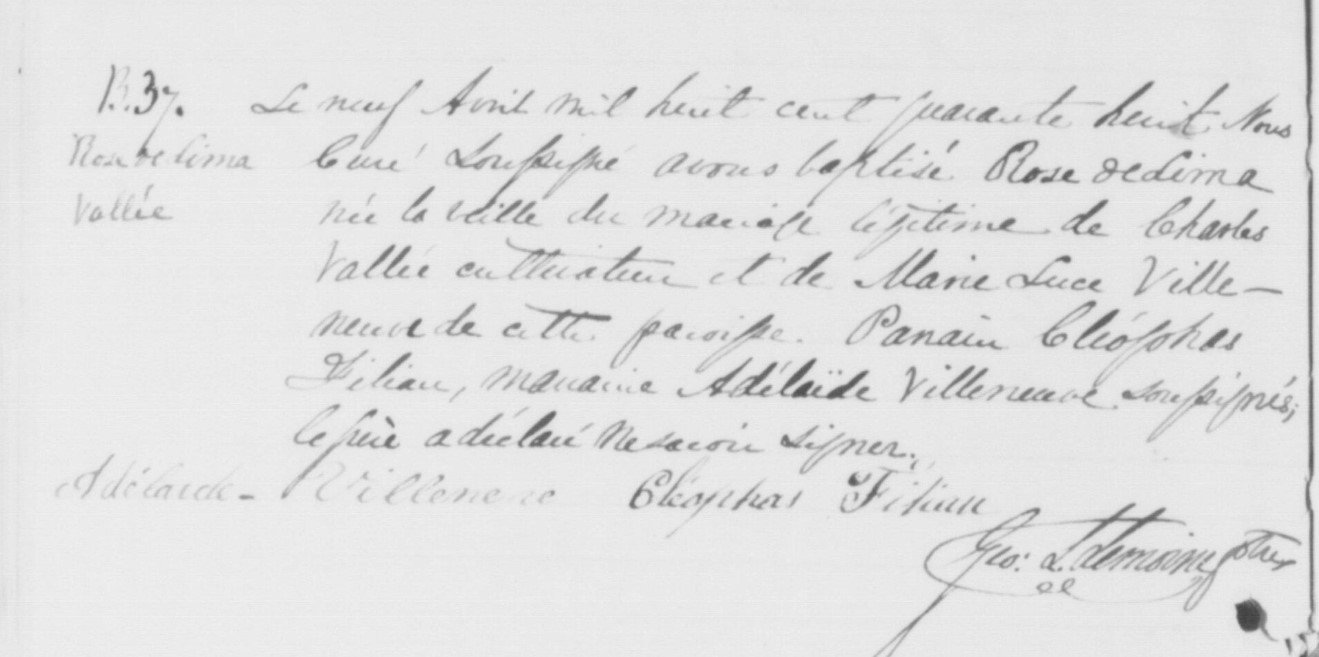 B.37. Le neuf Avril mil huit cent quarante huit Nous
Rose de Lima Curé Soussigné avons baptisé Rose de Lima
Vallée née la veille du mariage légitime de Charles
Vallée cultivateur et de Marie Luce Ville-
neuve de cette paroisse. Parain Cléophas
Filian, maraine Adélaïde Villeneuve soussignés;
le père a déclaré ne savoir signer.
Adélaide - Villeneuve Cléophas Filian
Geo: